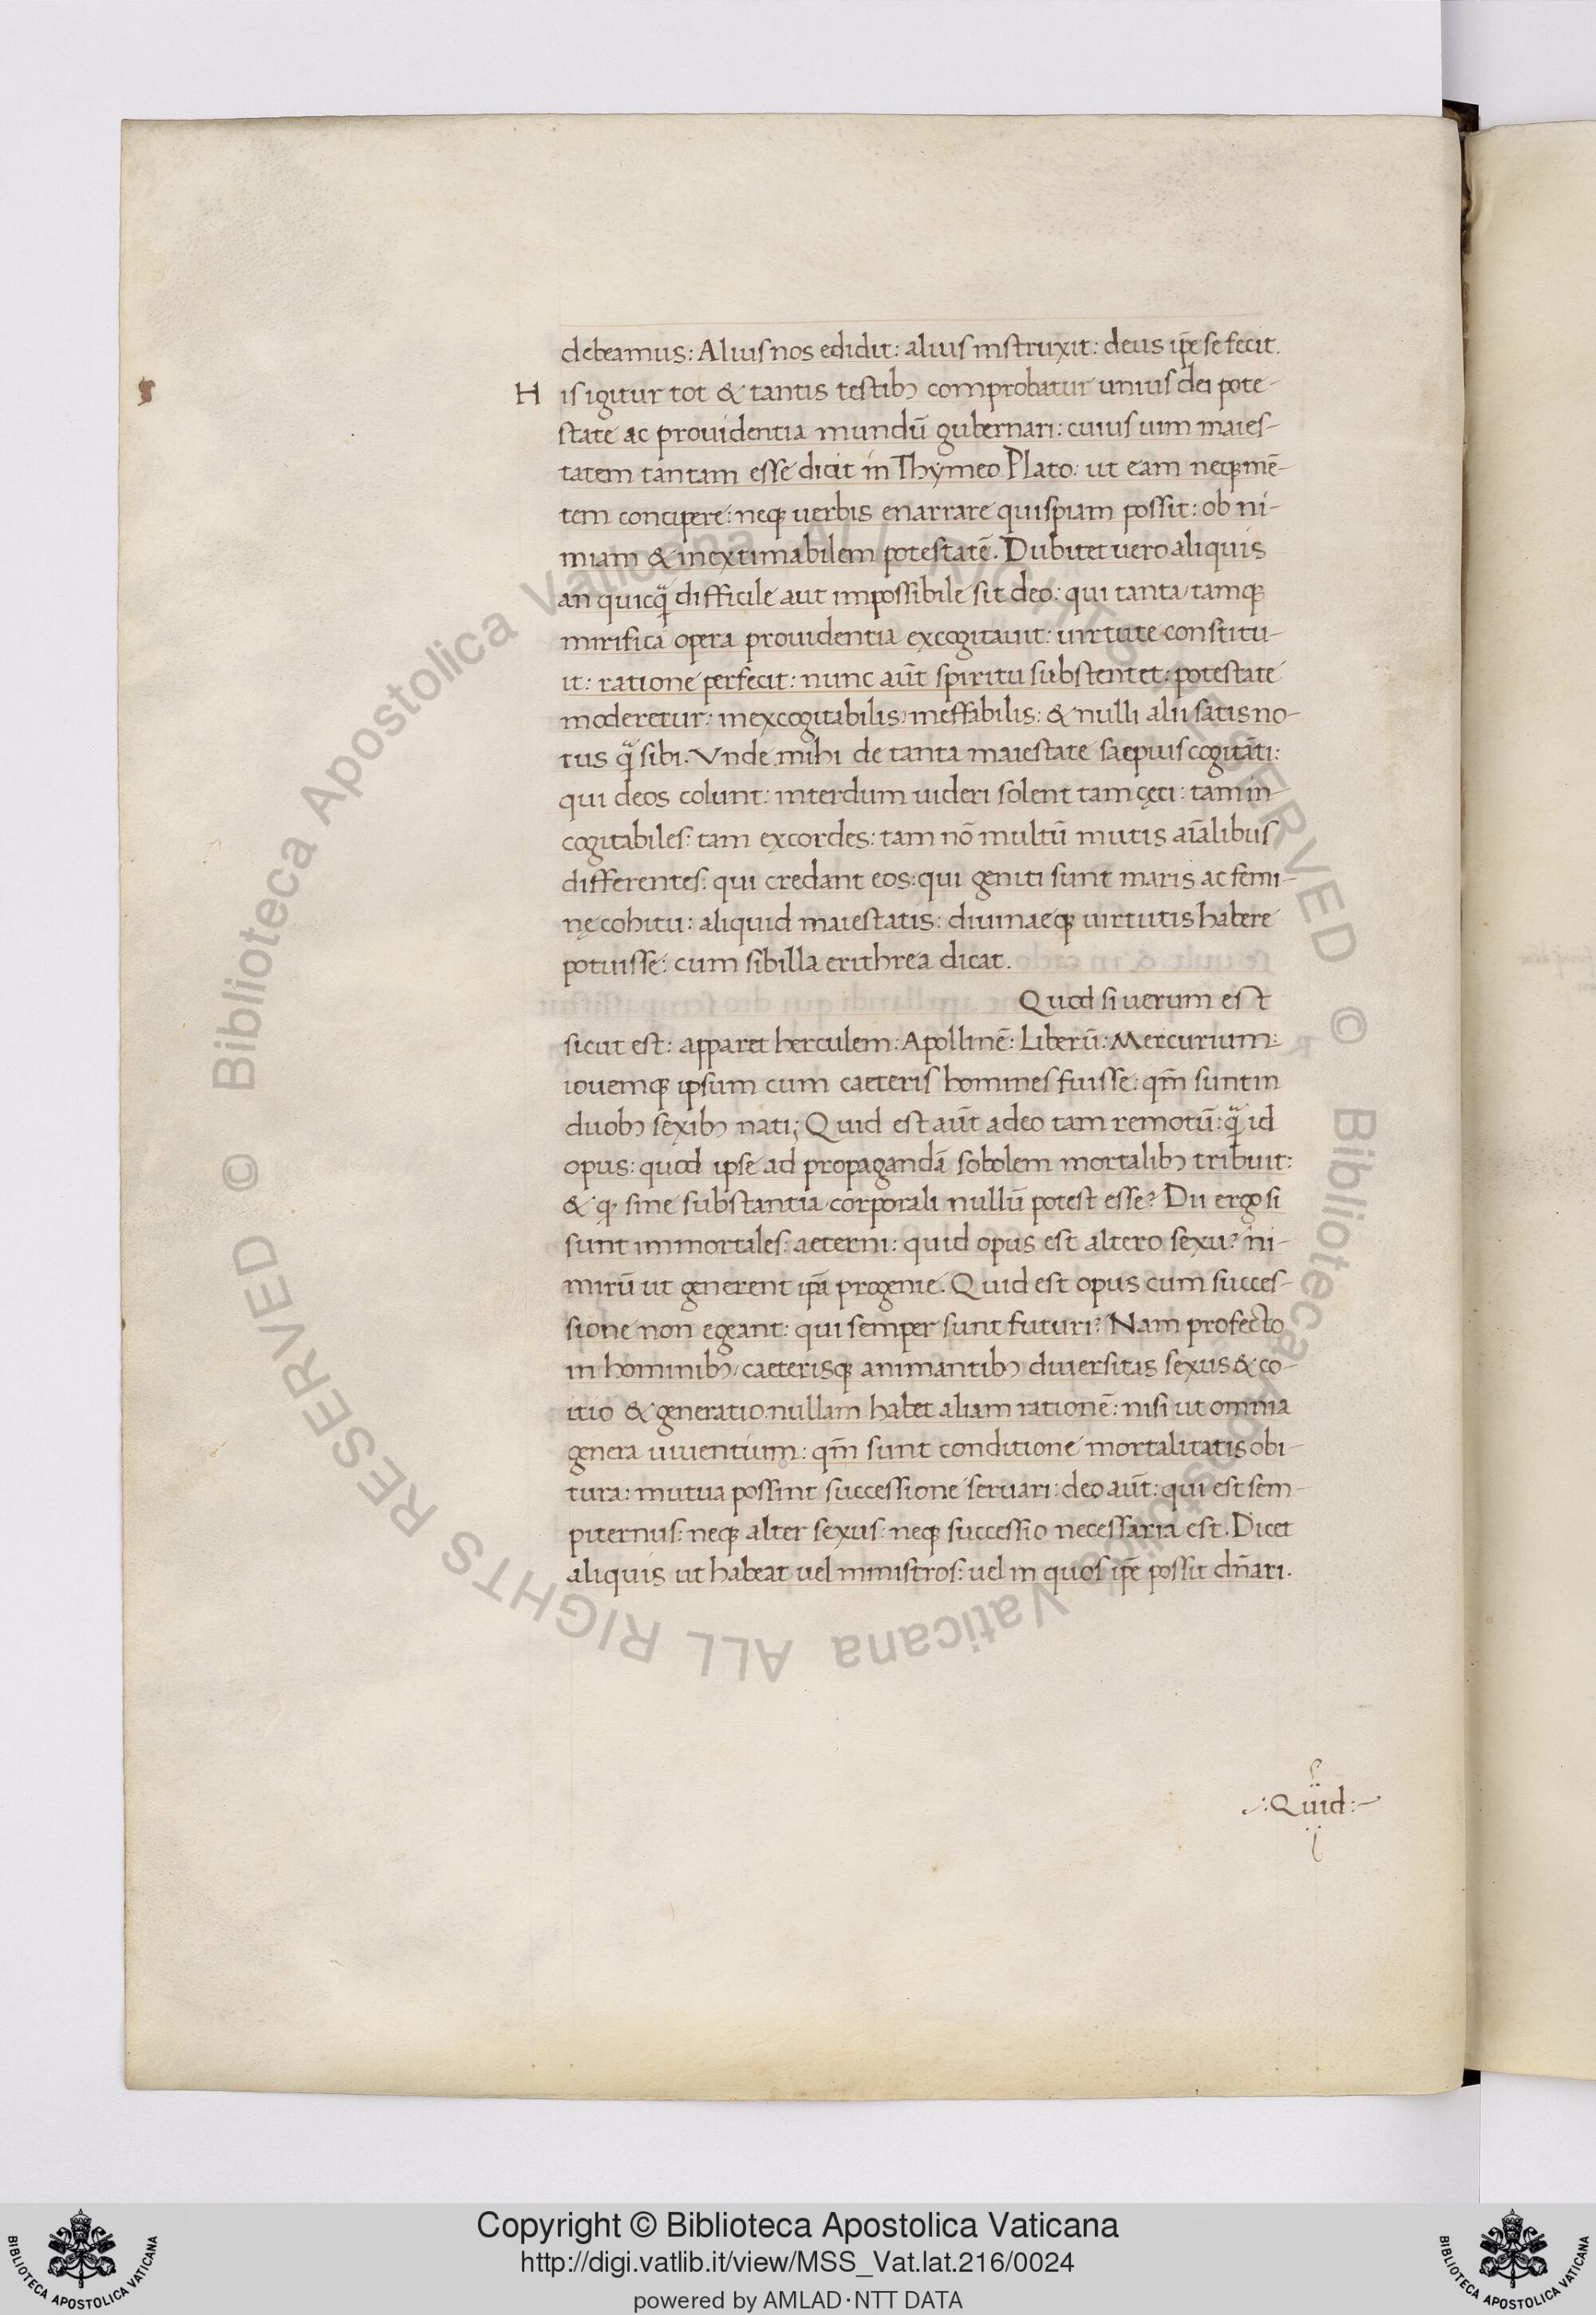 debeamus: Alius nos edidit: alius instruxit: deus ip̄e se fecit.
H is igitur tot & tantis testibꝫ comprobatur unius dei pote-
state ac prouidentia mundū gubernari: cuius uim maies-
tatem tantam esse dicit in Thymeo Plato: ut eam neqꝫ mē-
tem concipere: neqꝫ uerbis enarrare quispiam possit: ob ni-
miam & inextimabilem potestatē. Dubitet uero aliquis
an quicq̃ difficile aut impossibile sit deo: qui tanta, tamqꝫ
mirifica opera prouidentia excogitauit: uirtute constitu-
it: ratione perfecit: nunc aūt spiritu substentet: potestate
moderetur: inexcogitabilis, ineffabilis: & nulli alii satis no-
tus q̃ sibi. Vnde mihi de tanta maiestate saepius cogitāti:
qui deos colunt: interdum uideri solent tam cęci: tam in-
cogitabiles: tam excordes: tam nō multū mutis aīalibus
differentes: qui credant eos: qui geniti sunt maris ac femi-
nę cohitu: aliquid maiestatis: diuinaeqꝫ uirtutis habere
potuisse: cum sibilla erithrea dicat.
Quod si uerum est
sicut est: apparet herculem: Apollinē: Liberū: Mercurium:
iouemqꝫ ipsum cum caeteris homines fuisse: qm̄ sunt in
duobꝫ sexibꝫ nati; Quid est aūt adeo tam remotū: q̃ id
opus: quod ipse ad propagandā sobolem mortalibꝫ tribuit:
& qꝫ sine substantia corporali nullū potest esse? Dii ergo si
sunt immortales: aeterni: quid opus est altero sexu? ni-
mirū ut generent ip̄a progenie. Quid est opus cum succes-
sione non egeant: qui semper sunt futuri? Nam profecto
in hominibꝫ, caeterisqꝫ animantibꝫ diuersitas sexus & co-
itio & generatio nullam habet aliam rationē: nisi ut omnia
genera uiuentium: qm̄ sunt conditione mortalitatis obi-
tura: mutua possint successione seruari: deo aūt: qui est sem-
piternus: neqꝫ alter sexus: neqꝫ successio necessaria est. Dicet
aliquis ut habeat uel ministros: uel in quos ip̄e possit dn̄ari.
:Quid:
© Biblioteca Apostolica Vaticana ALL RIGHTS RESERVED © Biblioteca Apostolica Vaticana ALL RIGHTS RESERVED
Copyright © Biblioteca Apostolica Vaticana
http://digi.vatlib.it/view/MSS_Vat.lat.216/0024
powered by AMLAD·NTT DATA
BIBLIOTECA APOSTOLICA VATICANA
BIBLIOTECA APOSTOLICA VATICANA